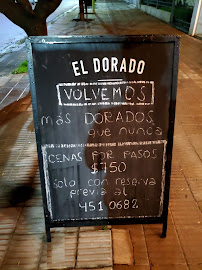 EL DORADO
VOLVEMOS
más DORADOS
que nunca
CENAS POR PASOS
$750
solo con reserva
previa al
451 0682